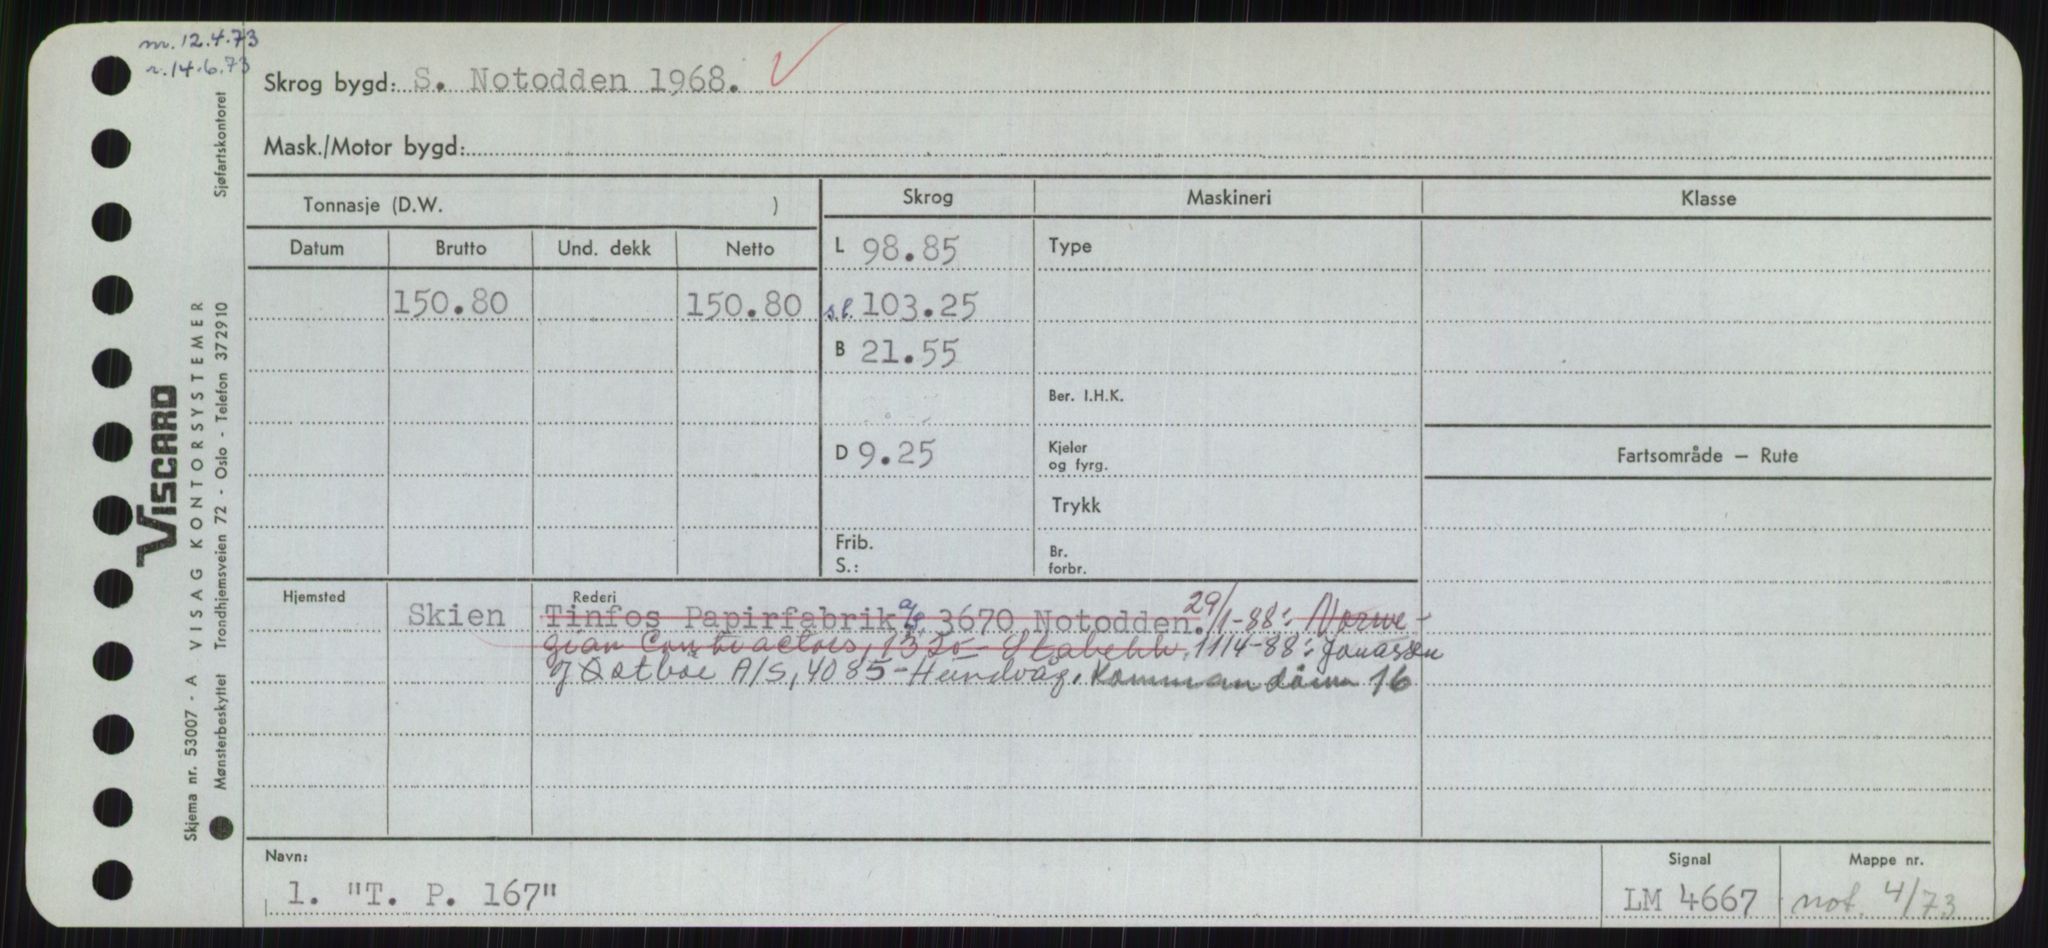 nr. 12.4.73
r. 14.6.73
Skrog bygd: S. Notodden 1968.
Mask./Motor bygd:
Tonnasje (D.W. )
Skrog
Maskineri
Klasse
Datum Brutto Und. dekk Netto
L 98.85
Type
150.80 150.80
s.l. 103.25
B 21.55
Ber. I.H.K.
D 9.25
Kjeler
og fyrg.
Fartsområde – Rute
Trykk
Frib.
S.:
Br.
forbr.
Hjemsted Skien
Rederi
Tinfos Papirfabrik a/s, 3670 Notodden. 29/1-88: Norwe-
gian Contractors, 1320 - Stabekk. 11/4-88: Jonassen
& Østbøe A/S, 4085 - Hundvåg. 16
Navn:
1. "T. P. 167"
Signal
LM 4667
Mappe nr.
not. 4/73
Skjema nr. 53007 - A VISAG KONTORSYSTEMER
VISCARD
Mønsterbeskyttet Trondhjemsveien 72 - Oslo - Telefon 372910 Sjøfartskontoret